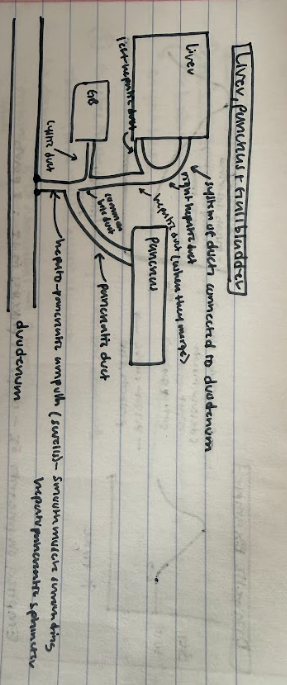 Liver, Pancreas + Gallbladder
system of ducts connected to duodenum
Liver
right hepatic duct
left hepatic duct
hepatic duct (where they merge)
GB
cystic duct
common
bile duct
Pancreas
pancreatic duct
hepato-pancreatic ampulla (swells) - smooth muscle surrounding
hepatopancreatic sphincter
duodenum